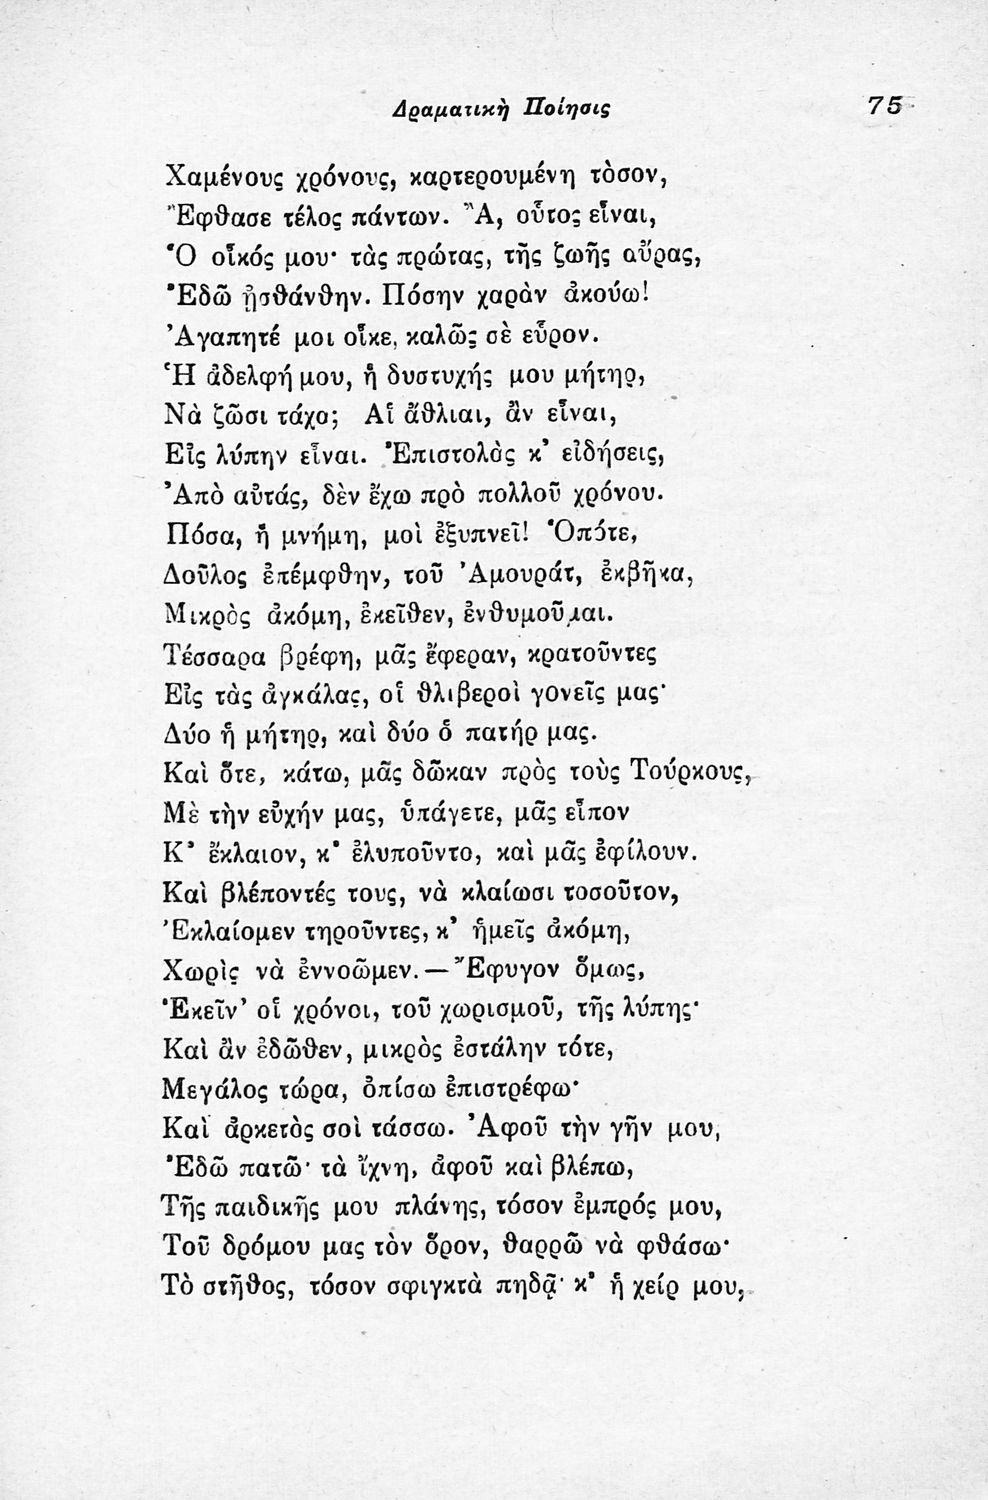 Δραματικὴ Ποίησις 75
Χαμένους χρόνους, καρτερουμένη τὸσον,
Ἔφθασε τέλος πάντων. Ἂ, οὗτος εἶναι,
Ὁ οἶκός μου· τὰς πρώτας, τῆς ζωῆς αὔρας,
Ἐδῶ ᾐσθάνθην. Πόσην χαρὰν ἀκούω!
Ἀγαπητέ μοι οἶκε, καλῶς σὲ εὗρον.
Ἡ ἀδελφή μου, ἡ δυστυχής μου μήτηρ,
Νὰ ζῶσι τάχα; Αἱ ἄθλιαι, ἂν εἶναι,
Εἰς λύπην εἶναι. Ἐπιστολὰς κ' εἰδήσεις,
Ἀπὸ αὐτάς, δὲν ἔχω πρὸ πολλοῦ χρόνου.
Πόσα, ἡ μνήμη, μοὶ ἐξυπνεῖ! Ὁπότε,
Δοῦλος ἐπέμφθην, τοῦ Ἀμουράτ, ἐκβῆκα,
Μικρὸς ἀκόμη, ἐκεῖθεν, ἐνθυμοῦμαι.
Τέσσαρα βρέφη, μᾶς ἔφεραν, κρατοῦντες
Εἰς τὰς ἀγκάλας, οἱ θλιβεροὶ γονεῖς μας·
Δύο ἡ μήτηρ, καὶ δύο ὁ πατήρ μας.
Καὶ ὅτε, κάτω, μᾶς δῶκαν πρὸς τοὺς Τούρκους,
Μὲ τὴν εὐχήν μας, ὑπάγετε, μᾶς εἶπον
Κ' ἔκλαιον, κ' ἐλυποῦντο, καὶ μᾶς ἐφίλουν.
Καὶ βλέποντές τους, νὰ κλαίωσι τοσοῦτον,
Ἐκλαίομεν τηροῦντες, κ' ἡμεῖς ἀκόμη,
Χωρὶς νὰ ἐννοῶμεν. — Ἔφυγον ὅμως,
Ἐκεῖν' οἱ χρόνοι, τοῦ χωρισμοῦ, τῆς λύπης·
Καὶ ἂν ἐδῶθεν, μικρὸς ἐστάλην τότε,
Μεγάλος τώρα, ὀπίσω ἐπιστρέφω·
Καὶ ἀρκετὸς σοὶ τάσσω. Ἀφοῦ τὴν γῆν μου,
Ἐδῶ πατῶ· τὰ ἴχνη, ἀφοῦ καὶ βλέπω,
Τῆς παιδικῆς μου πλάνης, τόσον ἐμπρός μου,
Τοῦ δρόμου μας τὸν ὅρον, θαρρῶ νὰ φθάσω·
Τὸ στῆθος, τόσον σφιγκτὰ πηδᾷ· κ' ἡ χείρ μου,